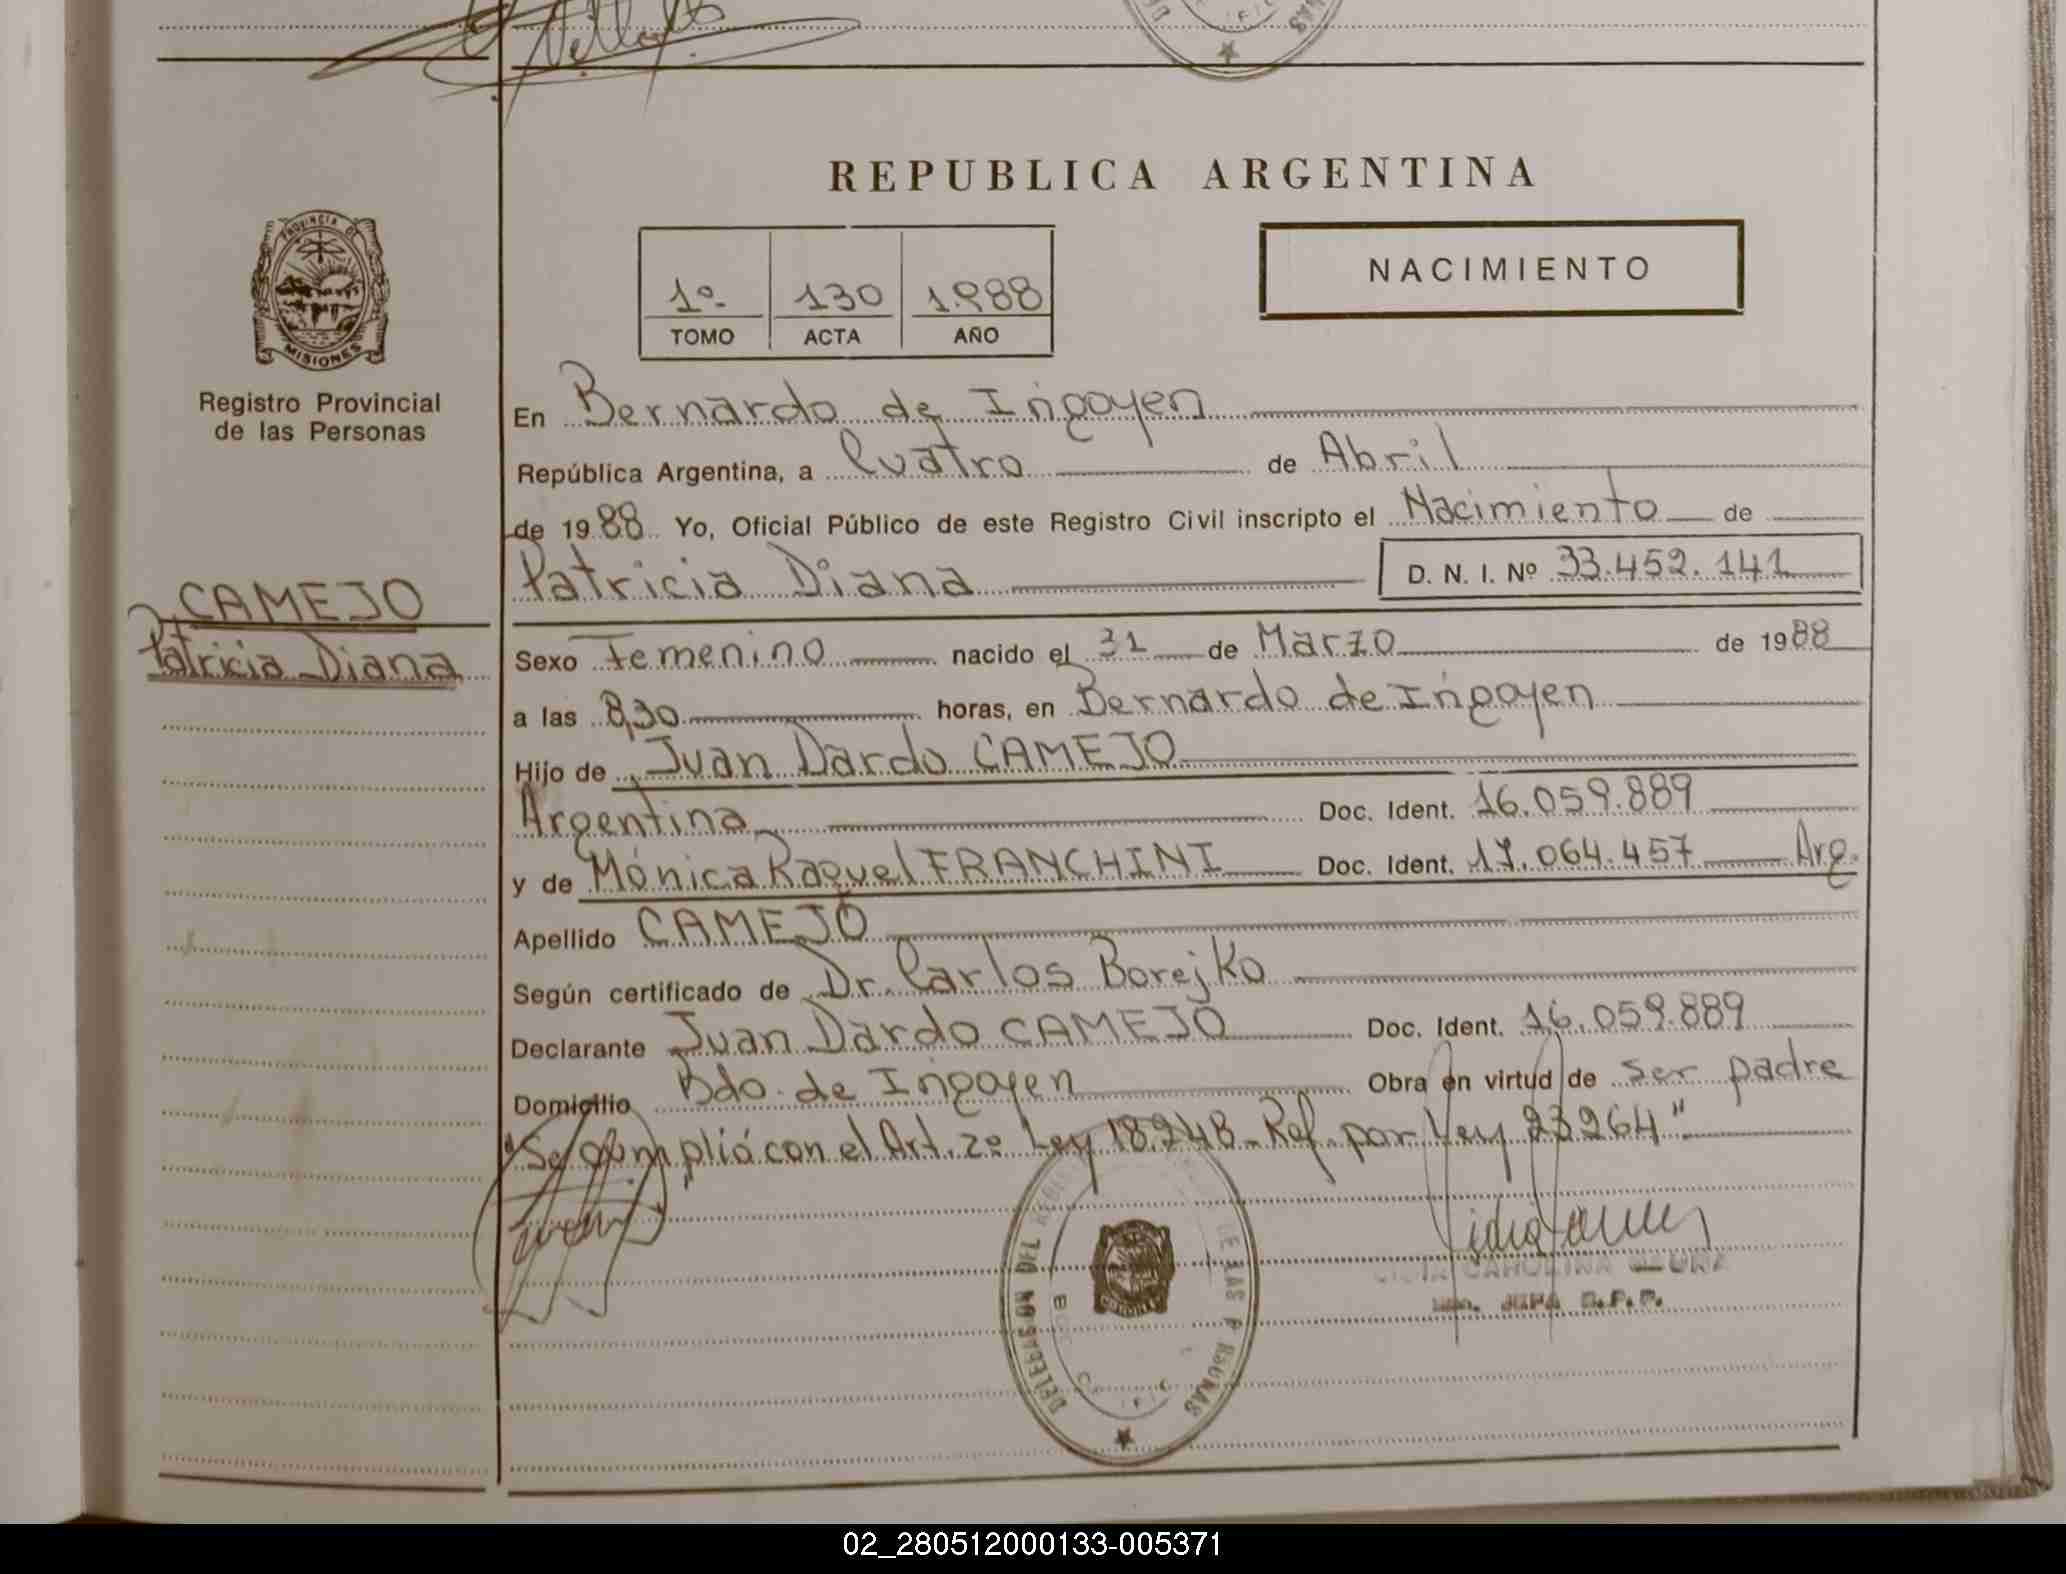 REPUBLICA ARGENTINA
PROVINCIA DE
MISIONES
Registro Provincial
de las Personas
1º 130 1.988
TOMO ACTA AÑO
NACIMIENTO
CAMEJO
Patricia Diana
En Bernardo de Irigoyen
República Argentina, a Cuatro de Abril
de 1988 Yo, Oficial Público de este Registro Civil inscripto el Nacimiento de
Patricia Diana D. N. I. Nº 33.452.141
Sexo Femenino nacido el 31 de Marzo de 1988
a las 8,30 horas, en Bernardo de Irigoyen
Hijo de Juan Dardo CAMEJO
Argentina Doc. Ident. 16.059.889
y de Mónica Raquel FRANCHINI Doc. Ident. 17.064.457 Arg.
Apellido CAMEJO
Según certificado de Dr. Carlos Borejko
Declarante Juan Dardo CAMEJO Doc. Ident. 16.059.889
Domicilio Bdo. de Irigoyen Obra en virtud de ser padre
"Se cumplió con el Art. 2º Ley 18.248 - Ref. por Ley 23264"
CAROLINA
JEFA R.P.P.
02_280512000133-005371